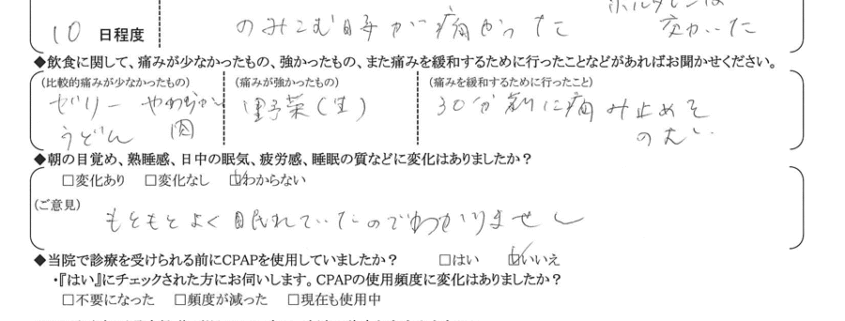 ボルタレンは
10 日程度 のみこむ時が痛かった 効いた
◆飲食に関して、痛みが少なかったもの、強かったもの、また痛みを緩和するために行ったことなどがあればお聞かせください。
(比較的痛みが少なかったもの) (痛みが強かったもの) (痛みを緩和するために行ったこと)
ゼリー やわらかい 野菜(生) 30分前に痛み止めを
うどん 肉 のむ
◆朝の目覚め、熟睡感、日中の眠気、疲労感、睡眠の質などに変化はありましたか?
□変化あり □変化なし ☑わからない
(ご意見)
もともとよく眠れていたのでわかりません
◆当院で診療を受けられる前にCPAPを使用していましたか? □はい ☑いいえ
・『はい』にチェックされた方にお伺いします。CPAPの使用頻度に変化はありましたか?
□不要になった □頻度が減った □現在も使用中